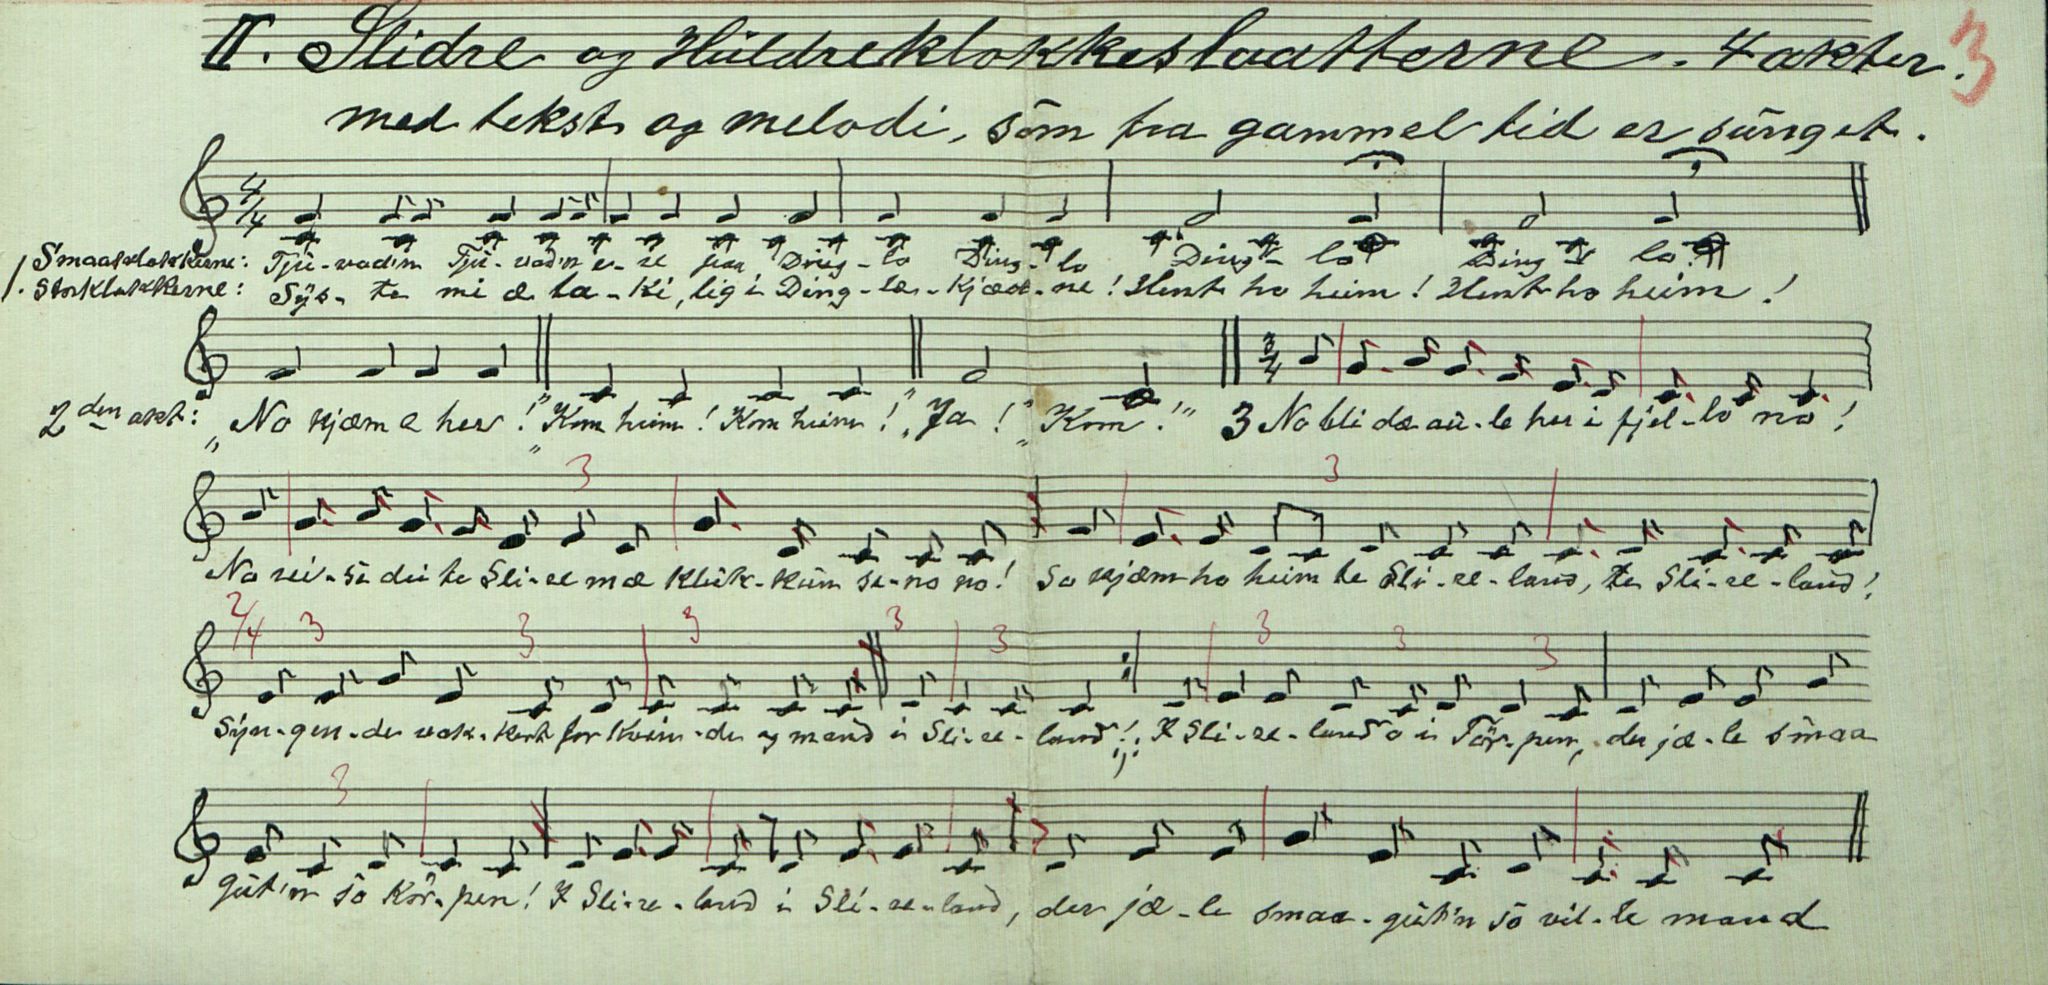 II. Slidre og Huldreklokkeslaatterne. 4 akter. 3
med tekst og melodi, som fra gammel tid er sunget.
4/4
Smaaklokkerne: Tju-vadn Tju-vadn e-re paa Ding-lo Ding-lo Ding-lo Ding-lo
1. Storklokkerne: Sys-te mi æ læ-ki, lig i Ding-læ-kjædn-ne! Hent ho heim! Hent ho heim!
3/4
2den akt: „No kjæm e her!" „Kom heim! Kom heim!" „Ja!" „Kom!" 3 No bli dæ au-le her i fjel-lo no!
3 3
No rei-se dei te Sli-re mæ Kluk-kun se-no no! So kjæm ho heim te Sli-re-land, te Sli-re-land!
2/4 3 3 3 3 3 3 3 3
Syn-gen-de vak-kert for Kvin-der og mand i Sli-re-land! I Sli-re-land o i Tor-pen, der jæ-le smaa
3
gut'n so Kor-pen! I Sli-re-land i Sli-re-land, der jæ-le smaa-gut'n so vil-le mand